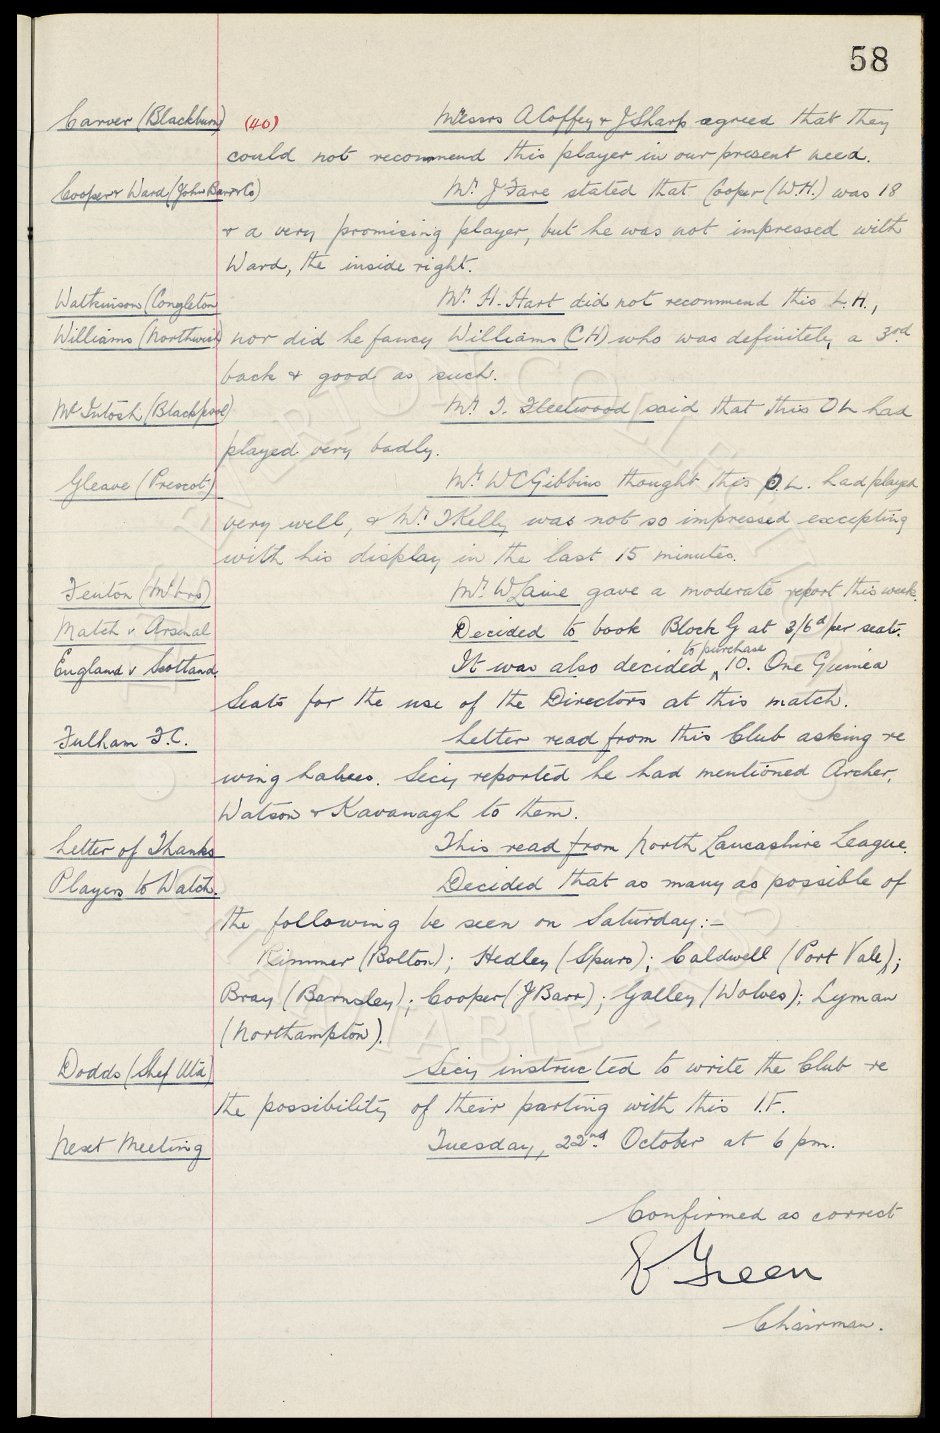 58
Carver (Blackburn) (40) Messrs A Coffey & J Sharp agreed that they
could not recommend this player in our present need.
Cooper & Ward (John Barr & Co) Mr. J Fare stated that Cooper (W.H.) was 18
& a very promising player, but he was not impressed with
Ward, the inside right.
Watkinson (Congleton Mr. H. Hart did not recommend this L.H.,
Williams (Northwich) nor did he fancy Williams (C.H) who was definitely a 3rd
back & good as such.
McIntosh (Blackpool) Mr. T. Fleetwood said that this OL had
played very badly.
Gleave (Prescot) Mr. W C Gibbins thought this O.L. had played
very well, & Mr. T Kelly was not so impressed excepting
with his display in the last 15 minutes.
Fenton (M'bro) Mr. W Laine gave a moderate report this week.
Match v. Arsenal Decided to book Block G at 3/6d per seat.
England v Scotland. It was also decided to purchase 10. One Guinea
Seats for the use of the Directors at this match.
Fulham F.C. Letter read from this Club asking re
wing halves. Secy reported he had mentioned Archer,
Watson & Kavanagh to them.
Letter of Thanks This read from North Lancashire League.
Players to Watch. Decided that as many as possible of
the following be seen on Saturday:-
Rimmer (Bolton); Hedley (Spurs); Caldwell (Port Vale);
Bray (Barnsley); Cooper (J Barr); Galley (Wolves); Lyman
(Northampton).
Dodds (Shef Utd) Secy instructed to write the Club re
the possibility of their parting with this I.F.
Next Meeting Tuesday, 22nd October at 6 pm.
Confirmed as correct
Green
Chairman.